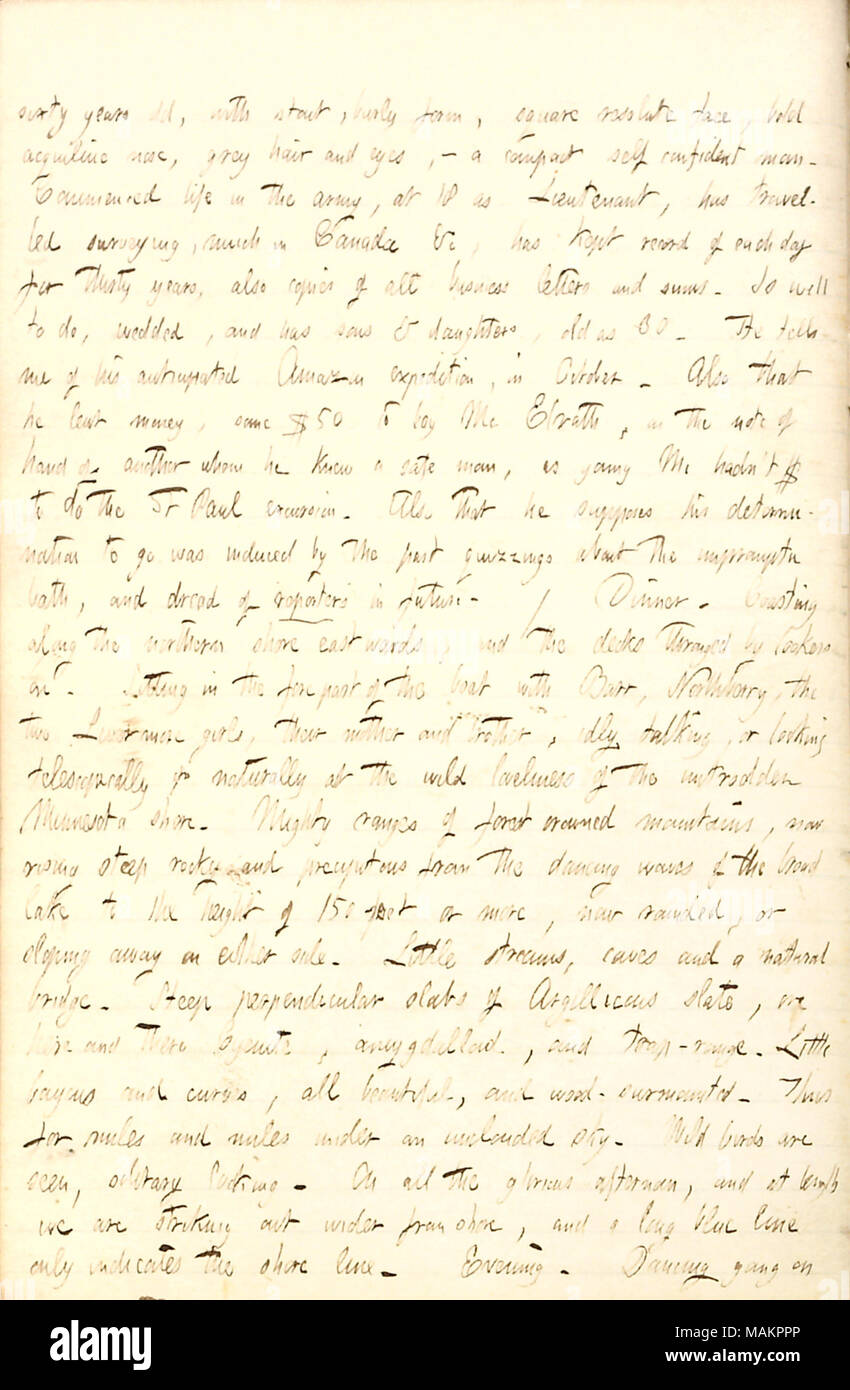 sixty years old, with stout, burly form, square resolute face, bold
acquiline nose, grey hair and eyes, – a compact self confident man.
Commenced life in the army, at 18 as Lieutenant, has travel-
led surveying, much in Canada &c, has kept record of each day
for thirty years, also copies of all business letters and sums. Is well
to do, wedded, and has sons & daughters, old as 30. He tells
me of his anticipated Amazon expedition, in October. Also that
he lent money, some $50 to boy Mc Elrath, on the note of
hand of another whom he knew a safe man, as young Mc hadn't $
to do the St Paul excursion. Also that he supposes his determi-
nation to go was induced by the past quizzings about the impromptu
bath, and dread of reporters in future. / Dinner. Coasting
along the northern shore eastwards, and the decks thronged by lookers
on. Sitting in the fore part of the boat with Barr, Northberry, the
two Livermore girls, their mother and "brother", idly talking, or looking
telescopically or naturally at the wild loveliness of the untrodden
Minnesota shore. Mighty ranges of forest crowned mountains, now
rising steep rocky and precipitous from the dancing waves of the broad
lake to the height of 150 feet or more, now rounded, or
sloping away on either side. Little streams, caves and a natural
bridge. Steep perpendicular slabs of Argillicous slate, or
here and there syenite, amygdaloid, and trap-range. Little
bayous and curves, all beautiful, and wood-surmounted. Thus
for miles and miles under an unclouded sky. Wild birds are
seen, solitary looking. On all the glorious afternoon, and at length
we are striking out wider from shore, and a long blue line
only indicates the shore line. Evening. Dancing going on
alamy
Image ID: MAKPPP
www.alamy.com